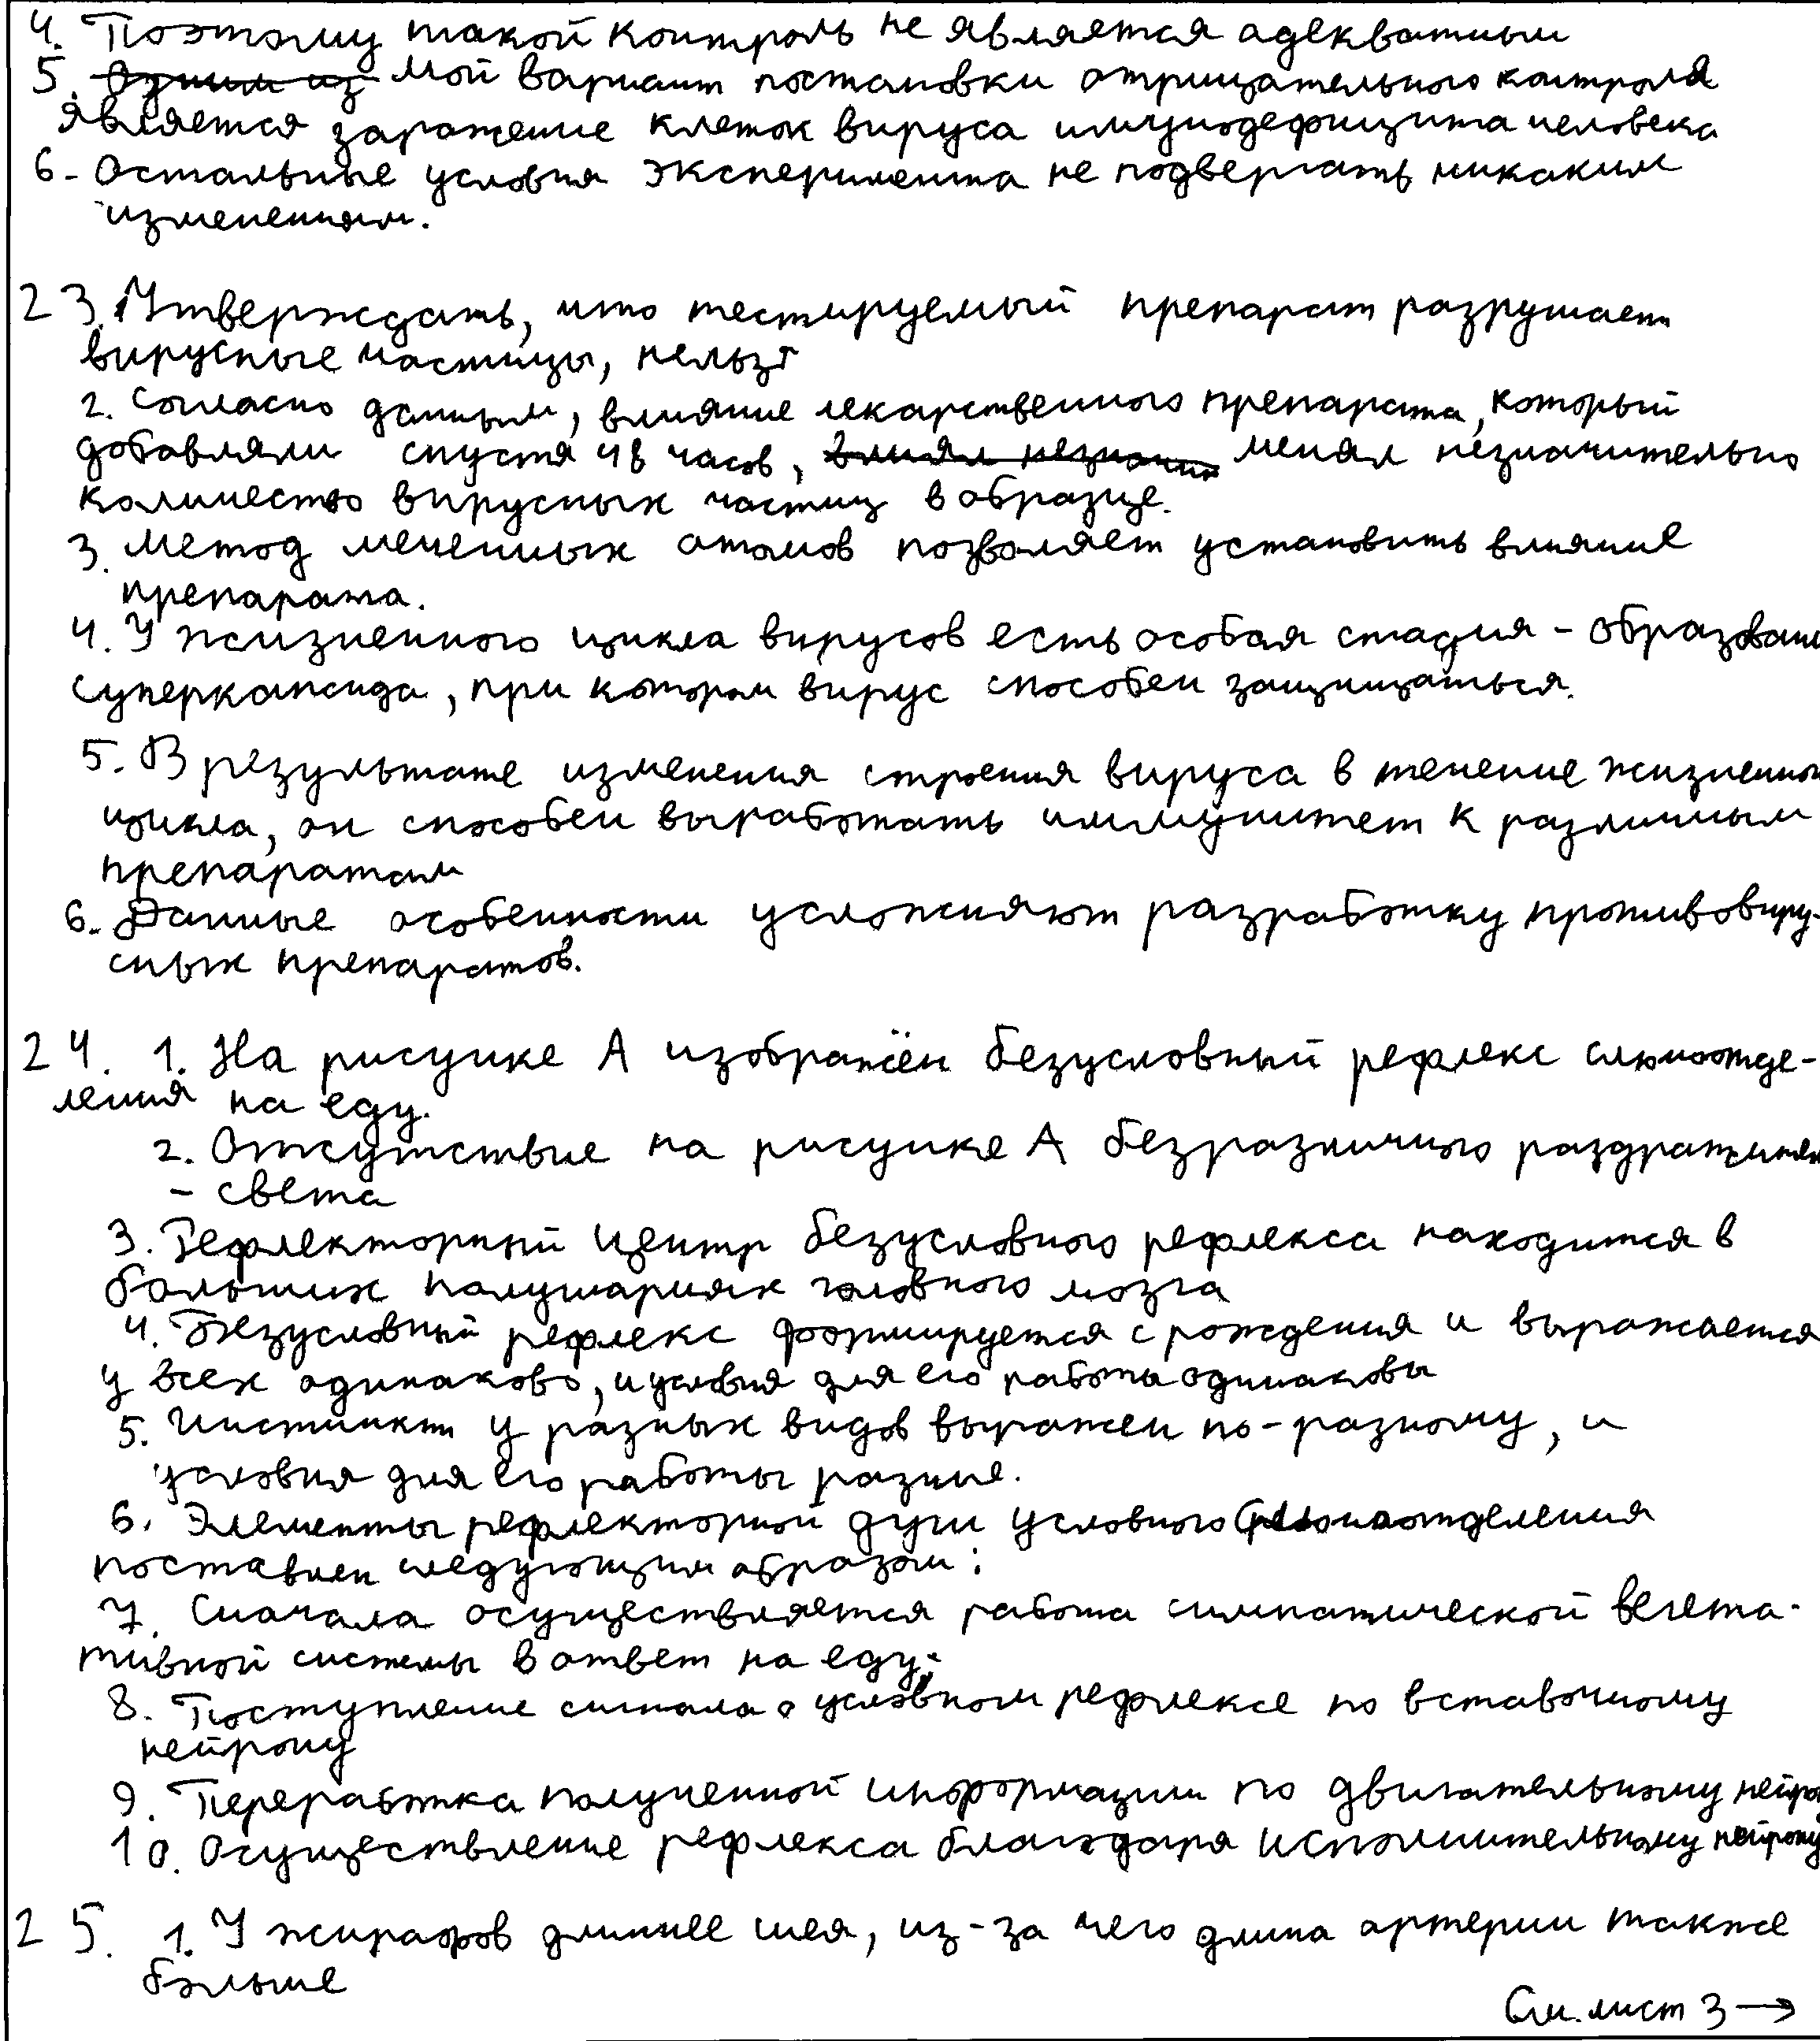 4. Поэтому такой контроль не является адекватным
5. Одним из Мой вариант постановки отрицательного контроля
является заражение клеток вируса иммунодефицита человека
6. Остальные условия эксперимента не подвергать никаким
изменениям.
23. 1. Утверждать, что тестируемый препарат разрушает
вирусные частицы, нельзя
2. Согласно данным, влияние лекарственного препарата, который
добавляли спустя 48 часов, влиял незначит менял незначительно
количество вирусных частиц в образце.
3. Метод меченных атомов позволяет установить влияние
препарата.
4. У жизненного цикла вирусов есть особая стадия - образован
суперкапсида, при котором вирус способен защищаться.
5. В результате изменения строения вируса в течение жизненно
цикла, он способен выработать иммунитет к различным
препаратам
6. Данные особенности усложняют разработку противовиру-
сных препаратов.
24. 1. На рисунке А изображён безусловный рефлекс слюноотде-
ления на еду.
2. Отсутствие на рисунке А безразличного раздражителя
- света
3. Рефлекторный центр безусловного рефлекса находится в
больших полушариях головного мозга
4. Безусловный рефлекс формируется с рождения и выражается
у всех одинаково, и условия для его работы одинаковы
5. Инстинкт у разных видов выражен по-разному, и
условия для его работы разные.
6. Элементы рефлекторной дуги условного слюноотделения
поставлен следующим образом:
7. Сначала осуществляется работа симпатической вегета-
тивной системы в ответ на еду;
8. Поступление сигнала о условном рефлексе по вставочному
нейрону
9. Переработка полученной информации по двигательному нейро
10. Осуществление рефлекса благодаря исполнительному нейрону
25. 1. У жирафов длиннее шея, из-за чего длина артерии также
больше
См. лист 3 →